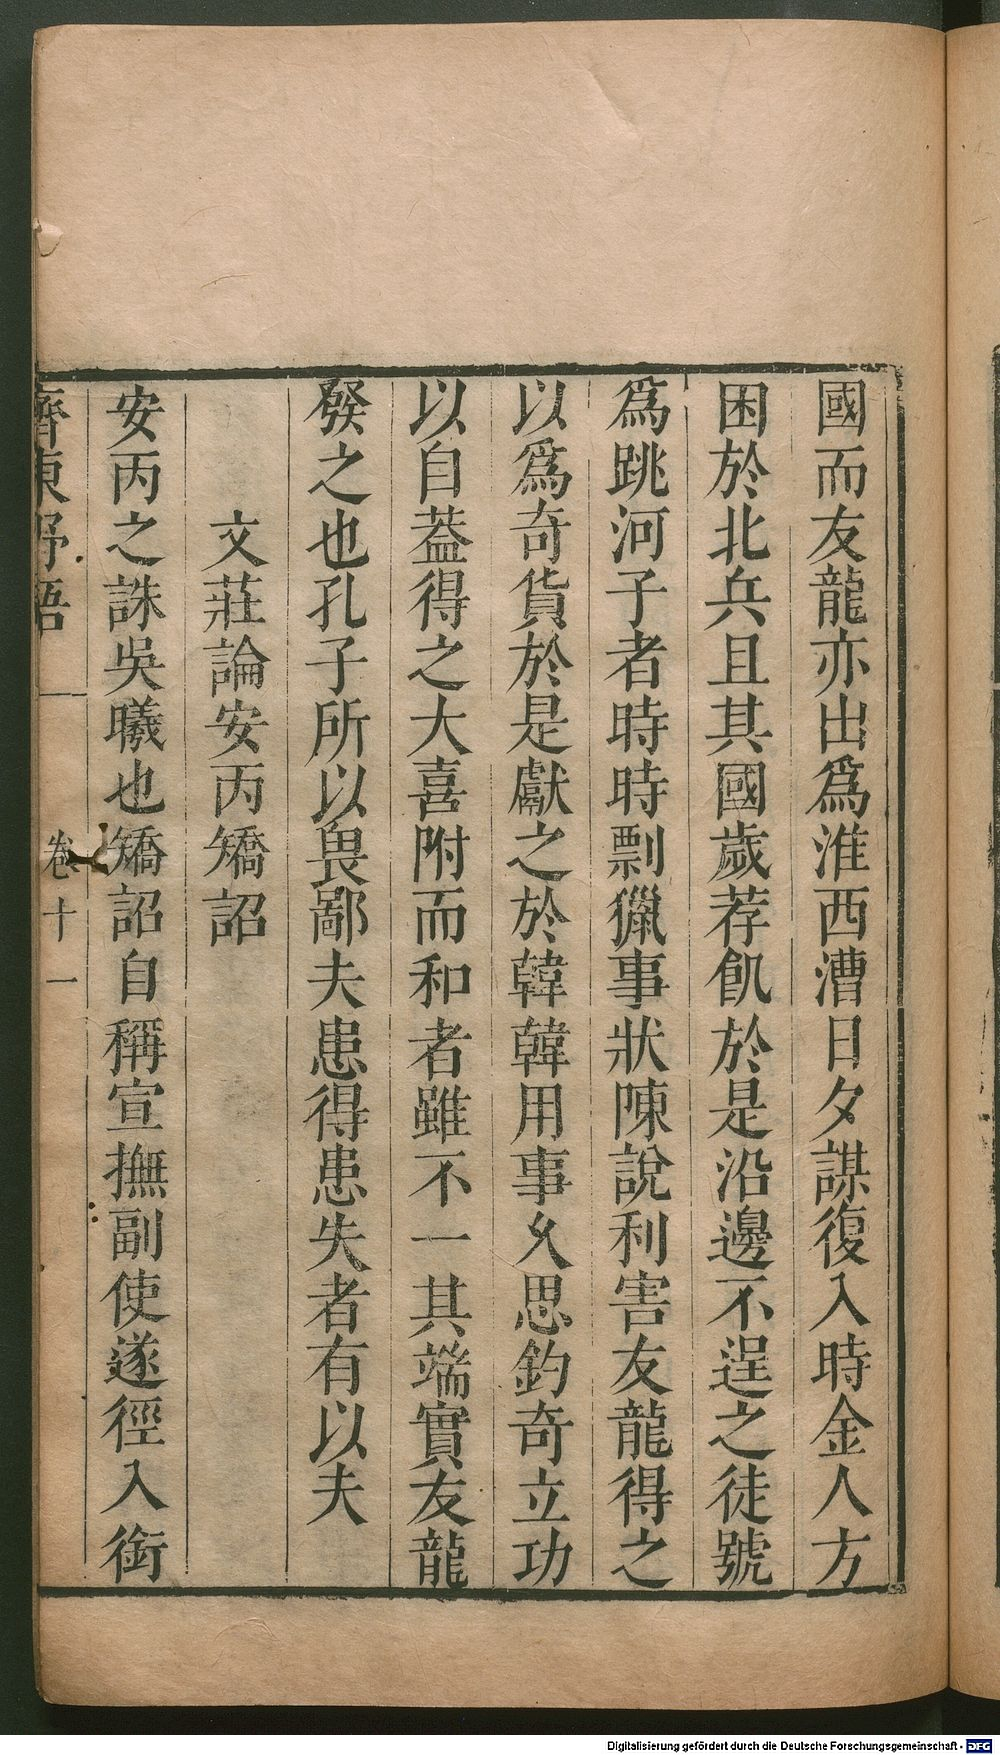 國而友龍亦出爲淮西漕日夕謀復入時金人方
困於北兵且其國歲荐飢於是沿邊不逞之徒號
爲跳河子者時時剽獵事狀陳說利害友龍得之
以爲奇貨於是獻之於韓韓用事久思釣奇立功
以自葢得之大喜附而和者雖不一其端實友龍
發之也孔子所以畏鄙夫患得患失者有以夫
文莊論安丙矯詔
安丙之誅吳曦也矯詔自稱宣撫副使遂徑入銜
齊東野語 卷十一
Digitalisierung gefördert durch die Deutsche Forschungsgemeinschaft - DFG